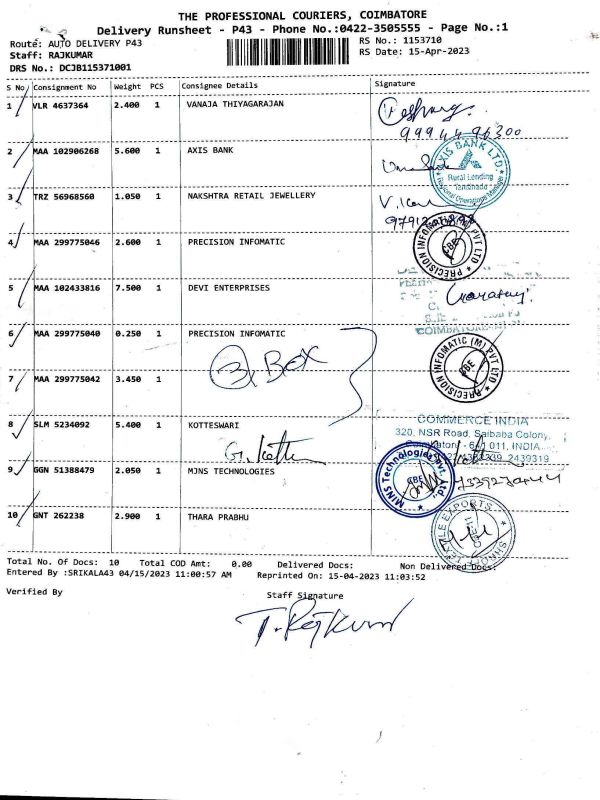 THE PROFESSIONAL COURIERS, COIMBATORE
Delivery Runsheet - P43 - Phone No.:0422-3505555 - Page No.:1
Route: AUTO DELIVERY P43
RS No.: 1153710
Staff: RAJKUMAR
RS Date: 15-Apr-2023
DRS No.: DCJB115371001
S No Consignment No Weight PCS Consignee Details Signature
1 VLR 4637364 2.400 1 VANAJA THIYAGARAJAN
99944 96300
2 MAA 102906268 5.600 1 AXIS BANK
AXIS BANK LTD
Rural Lending
3 TRZ 56968560 1.050 1 NAKSHTRA RETAIL JEWELLERY
4 MAA 299775046 2.600 1 PRECISION INFOMATIC
PRECISION INFOMATIC (M) PVT LTD
CBE
5 MAA 102433816 7.500 1 DEVI ENTERPRISES
6 MAA 299775040 0.250 1 PRECISION INFOMATIC
PRECISION INFOMATIC (M) PVT LTD
CBE
3 Box
7 MAA 299775042 3.450 1
8 SLM 5234092 5.400 1 KOTTESWARI
COMMERCE INDIA
320, NSR Road, Saibaba Colony,
011, INDIA.
2439319
9 GGN 51388479 2.050 1 MJNS TECHNOLOGIES
MJNS Technologies Pvt. Ltd.,
CBE
10 GNT 262238 2.900 1 THARA PRABHU
EXPORTS
Total No. Of Docs: 10 Total COD Amt: 0.00 Delivered Docs: Non Delivered Docs:
Entered By :SRIKALA43 04/15/2023 11:00:57 AM Reprinted On: 15-04-2023 11:03:52
Verified By Staff Signature
T. Rajkumar